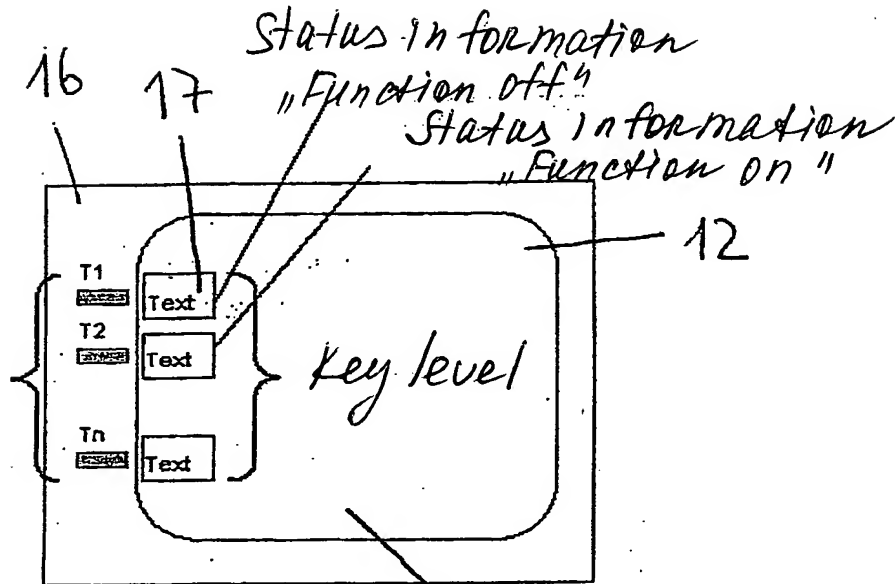 Status information
16 17 „Function off"
Status information
„Function on"
12
T1
Text
T2
Text
Key level
Tn
Text